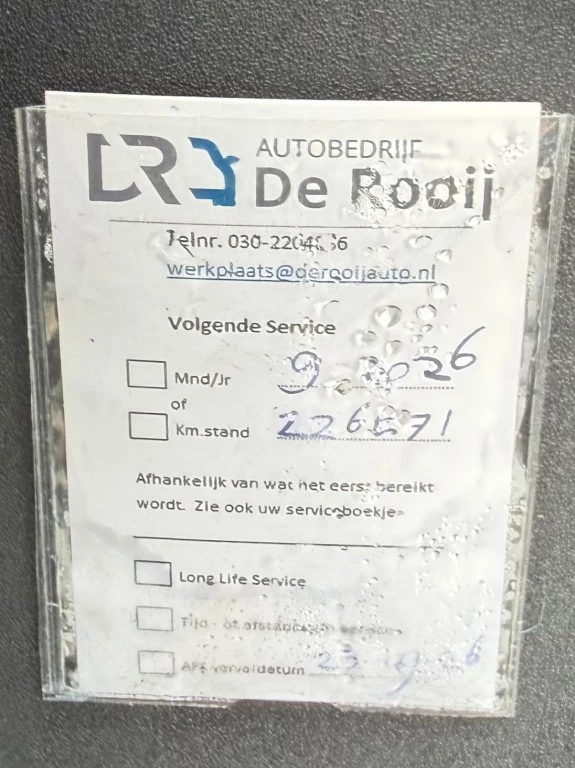 DR AUTOBEDRIJF
De Rooij
Telnr.
werkplaats@derooijauto.nl
Volgende Service
Mnd/Jr 9 2026
of
Km.stand 226571
Afhankelijk van wat het eerst bereikt
wordt. Zie ook uw serviceboekje
Long Life Service
Tijd - of afstand
APK vervaldatum 23 9 26